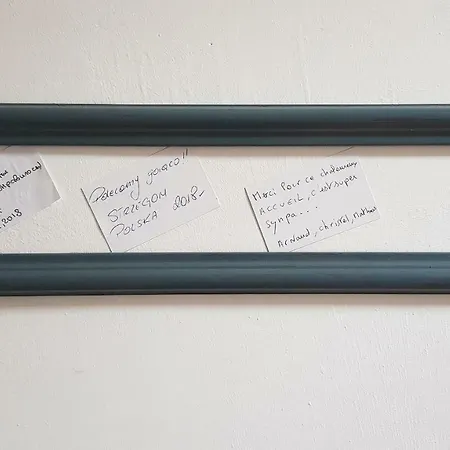 2018
Polecamy gorąco!!
STRZEGOM
POLSKA 2018-
Merci Pour ce chaleureux
ACCUEIL, C'est super
sympa...
Arnaud, Christel, Mathéo